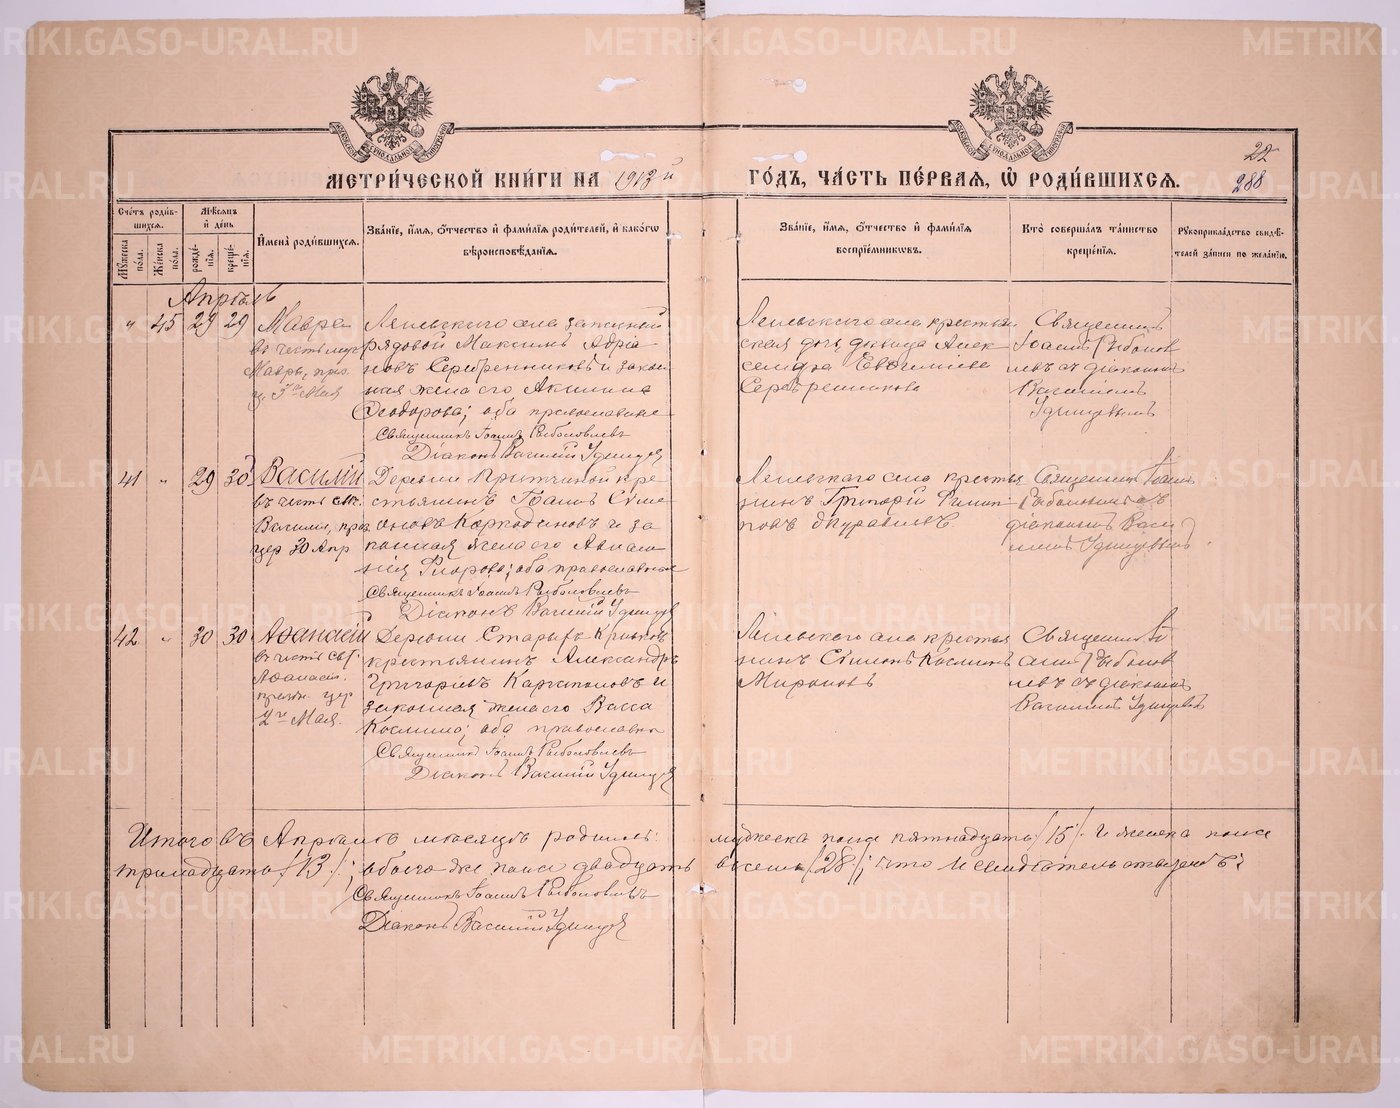 МЕТРИ́ЧЕСКОЙ КНИ́ГИ НА 1913й ГО́ДЪ, ЧА́СТЬ ПЕ́РВАЯ, Ѡ РОДИ́ВШИХСЯ.
22
288
Сче́тъ роди́в-
шихся.
Мꙋ́жеска по́ла.
Же́нска по́ла.
Мѣ́сяцъ
и҆ де́нь
рожде́-
нїя.
креще́-
нїя.
И҆мена̀ роди́вшихся.
Зва́нїе, и҆́мя, ѻ҆́тчество и҆ фами́лїя роди́телей, и҆ како́гѡ
вѣроисповѣ́данїя.
Зва́нїе, и҆́мя, ѻ҆́тчество и҆ фами́лїя
воспрїе́мникѡвъ.
Кто̀ соверша́лъ та́инство
креще́нїя.
Рꙋкоприкла́дство свидѣ́-
телей за́писи по жела́нїю.
Апрѣль
" 45 29 29 Мавра
въ честь муч.
Мавры, праз.
3го Мая
села запасный
рядовой Максимъ Адріа
новъ Серебренниковъ и закон
ная жена его Акилина
Ѳеодорова; оба православные
Священникъ Іоаннъ Рыболовлевъ
Діаконъ Василій Удинцев
села крестьян
ская дочь девица Алек
сандра Евгениева
Серебренникова
Священникъ
Іоаннъ Рыболов
левъ съ діакономъ
Василіемъ
Удинцевымъ
41 " 29 30 Василій
въ честь
Василия, праз
нуемаго 30 Апр
Деревни кре
стьянинъ Іоаннъ
оновъ Каркодиновъ и за
конная жена его
Флорова; оба православные
Священникъ Іоаннъ Рыболовлевъ
Діаконъ Василій Удинцев
села крестья
нинъ Григорій Филип
повъ Журавлевъ
Священникъ Іоаннъ
Рыболовлевъ съ
діакономъ Васи
ліемъ Удинцевымъ
42 " 30 30 Аѳанасій
въ честь св.
Аѳанасія,
2го Мая.
Деревни Старыхъ
крестьянинъ Александръ
Григорьевъ Каргаполовъ и
законная жена его Васса
Космина; оба православные
Священникъ Іоаннъ Рыболовлевъ
Діаконъ Василій Удинцев
села крестья
нинъ Космин
Мироновъ
Священникъ Іо
аннъ Рыболов
левъ съ діакономъ
Василіемъ Удинцевымъ
Итого въ Апрѣлѣ мѣсяцѣ родилось: мужеска пола пятнадцать /15/ и женска пола
тринадцать /13/; обоего же пола двадцать восемь /28/; что и свидѣтельствуемъ:
Священникъ Іоаннъ Рыболовлевъ
Діаконъ Василій Удинцев
METRIKI.GASO-URAL.RU